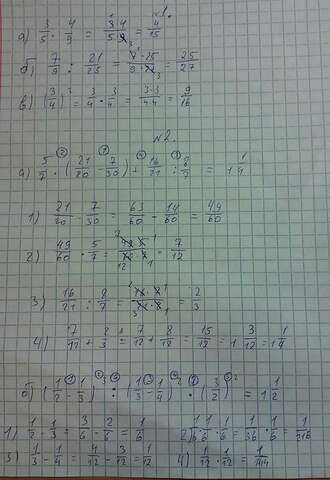 №1.
а) 3/5 · 4/9 = 3·4/5·9 = 4/15
б) 7/9 : 21/25 = 7·25/9·21 = 25/27
в) (3/4)² = 3/4 · 3/4 = 3·3/4·4 = 9/16
№2.
а) 5/7 · (21/20 - 7/30) + 16/21 : 8/7 = 1 1/4
1) 21/20 - 7/30 = 63/60 - 14/60 = 49/60
2) 49/60 · 5/7 = 49·5/60·7 = 7/12
3) 16/21 : 8/7 = 16·7/21·8 = 2/3
4) 7/12 + 2/3 = 7/12 + 8/12 = 15/12 = 1 3/12 = 1 1/4
1) 1/2 - 1/3 = 3/6 - 2/6 = 1/6 2) 1/6 · 1/6 · 1/6 = 1/36 · 1/6 = 1/216
3) 1/3 - 1/4 = 4/12 - 3/12 = 1/12 4) 1/12 · 1/12 = 1/144